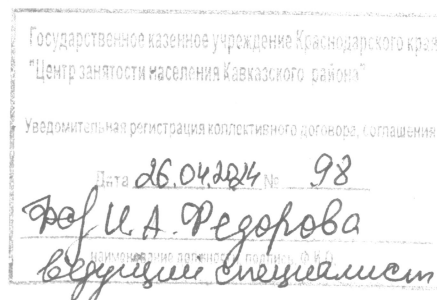 Государственное казенное учреждение Краснодарского края
"Центр занятости населения Кавказского района"
Уведомительная регистрация коллективного договора, соглашения
Дата 26.04.2024 № 98
И.А. Федорова
наименование должности, подпись, Ф.И.О.
ведущий специалист